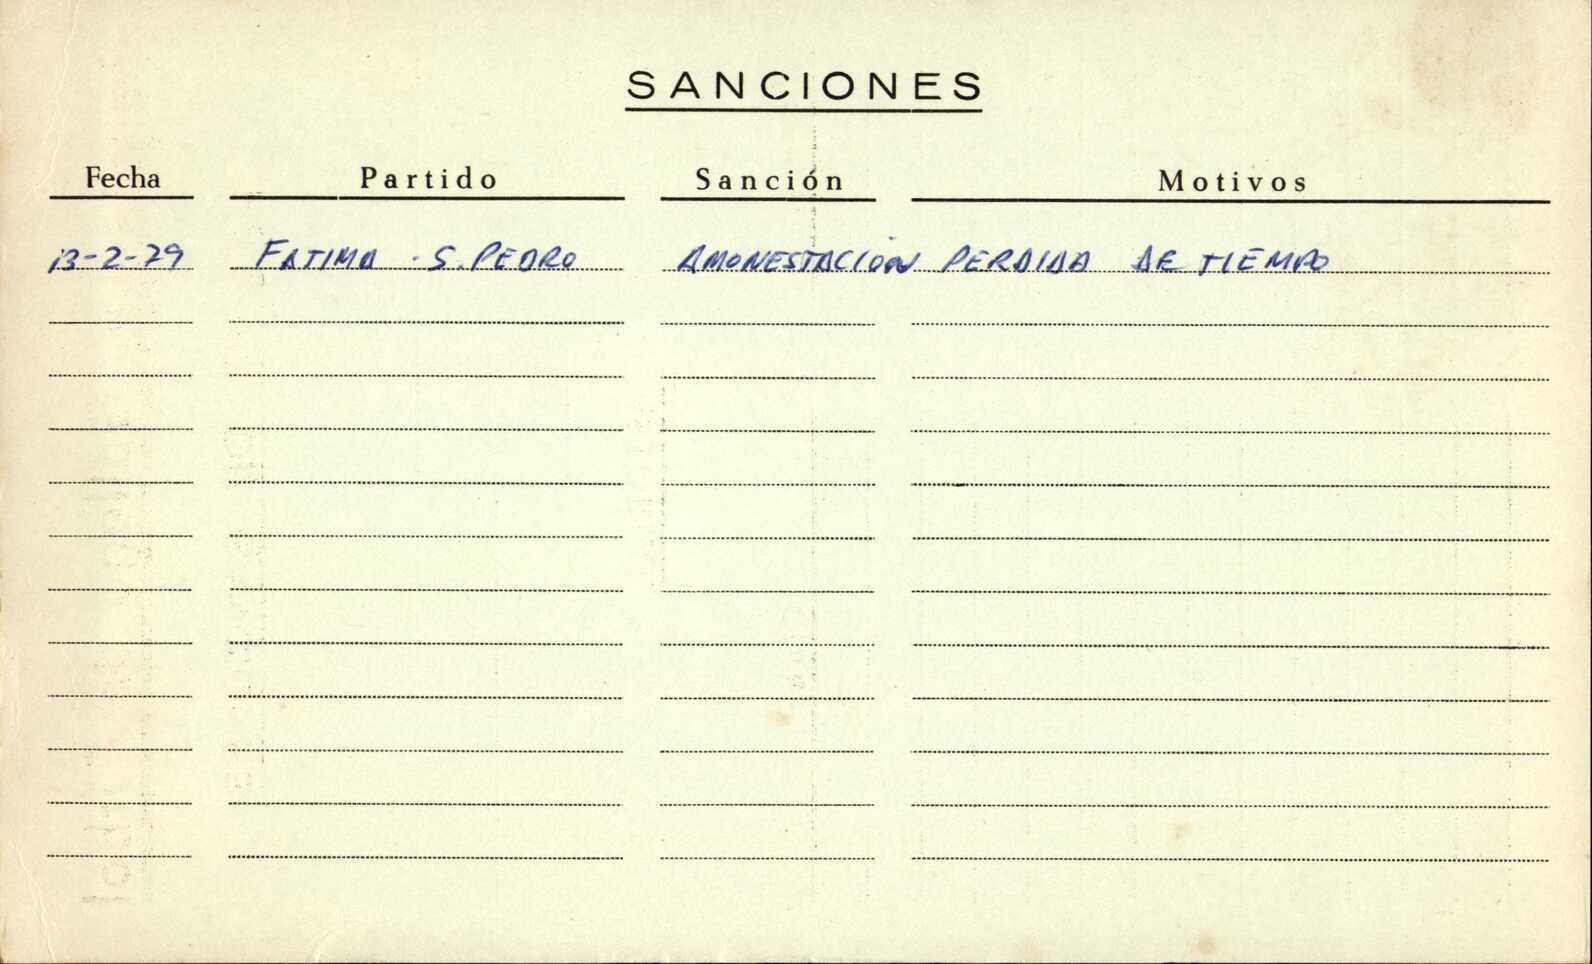 SANCIONES
Fecha Partido Sanción Motivos
13-2-79 FATIMA - S. PEDRO AMONESTACIÓN PERDIDA DE TIEMPO